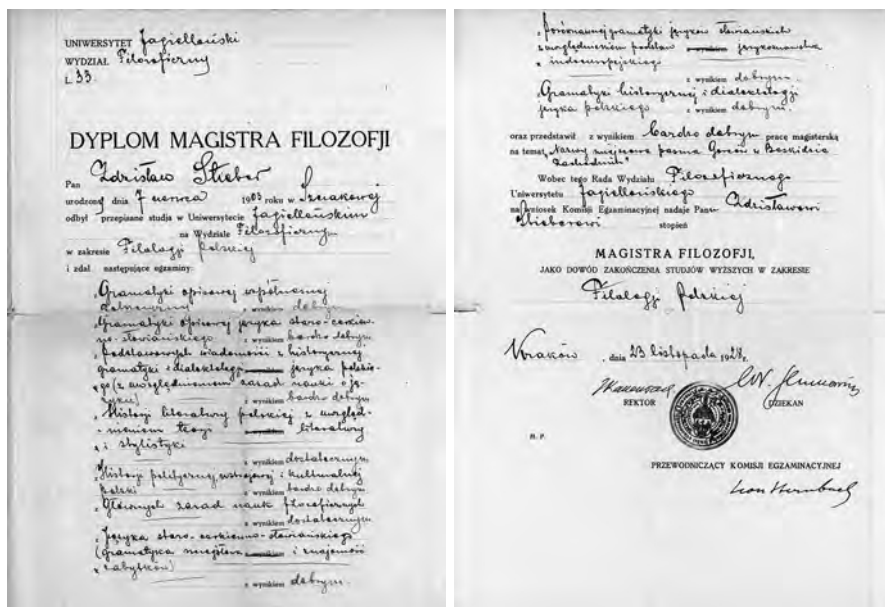 UNIWERSYTET Jagielloński
WYDZIAŁ Filozoficzny
L. 33.
DYPLOM MAGISTRA FILOZOFJI
Pan Zdzisław Stieber
urodzony dnia 7 czerwca 1903 roku w Szczakowej
odbył przepisane studja w Uniwersytecie Jagiellońskim
na Wydziale Filozoficznym
w zakresie Filologji polskiej
i zdał następujące egzaminy:
Gramatyki opisowej współczesnej
z wynikiem dobrym
Gramatyki opisowej języka staro-cerkiew-
no-słowiańskiego z wynikiem bardzo dobrym
Podstawowych wiadomości z historycznej
gramatyki i dialektologji języka polskie-
go (z uwzględnieniem zasad nauki o ję-
zyku) z wynikiem bardzo dobrym
Historji literatury polskiej z uwzględ-
nieniem teorji literatury
i stylistyki
z wynikiem dostatecznym
Historji politycznej, ustrojowej i kulturalnej
Polski z wynikiem bardzo dobrym
Głównych zasad nauk filozoficznych
z wynikiem dostatecznym
Języka staro-cerkiewno-słowiańskiego
(gramatyka i znajomość
zabytków)
z wynikiem dobrym.
Porównawczej gramatyki języków słowiańskich
z uwzględnieniem podstaw językoznawstwa
indoeuropejskiego
z wynikiem dobrym
Gramatyki historycznej i dialektologji
języka polskiego z wynikiem dobrym.
oraz przedstawił z wynikiem bardzo dobrym pracę magisterską
na temat „Nazwy miejscowe pasma Gorców w Beskidzie
Zachodnim"
Wobec tego Rada Wydziału Filozoficznego
Uniwersytetu Jagiellońskiego
na wniosek Komisji Egzaminacyjnej nadaje Panu Zdzisławowi
Stieberowi stopień
MAGISTRA FILOZOFJI,
JAKO DOWÓD ZAKOŃCZENIA STUDJÓW WYŻSZYCH W ZAKRESIE
Filologji Polskiej
Kraków, dnia 23 listopada 1928 r.
REKTOR
DZIEKAN
M. P.
PRZEWODNICZĄCY KOMISJI EGZAMINACYJNEJ
Leon Sternbach